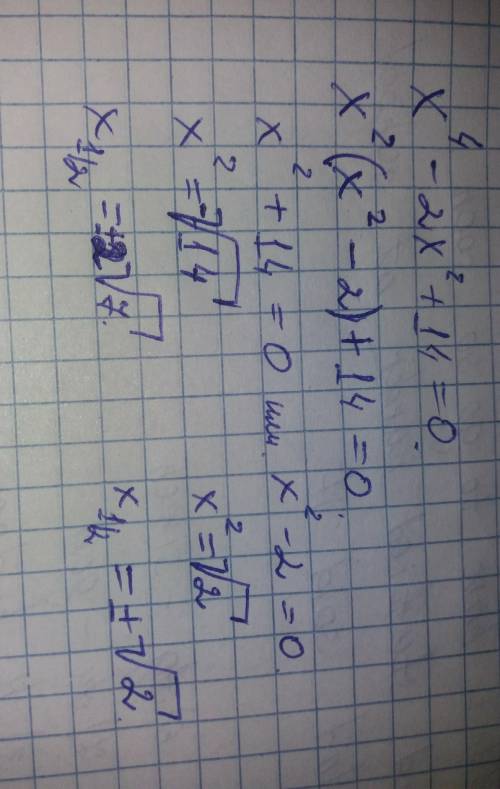 x⁴ - 2x² + 14 = 0
x²(x² - 2) + 14 = 0
x² + 14 = 0 или x² - 2 = 0
x² = √14 x² = √2
x₁/₂ = ±2√7 x₁/₂ = ±√2